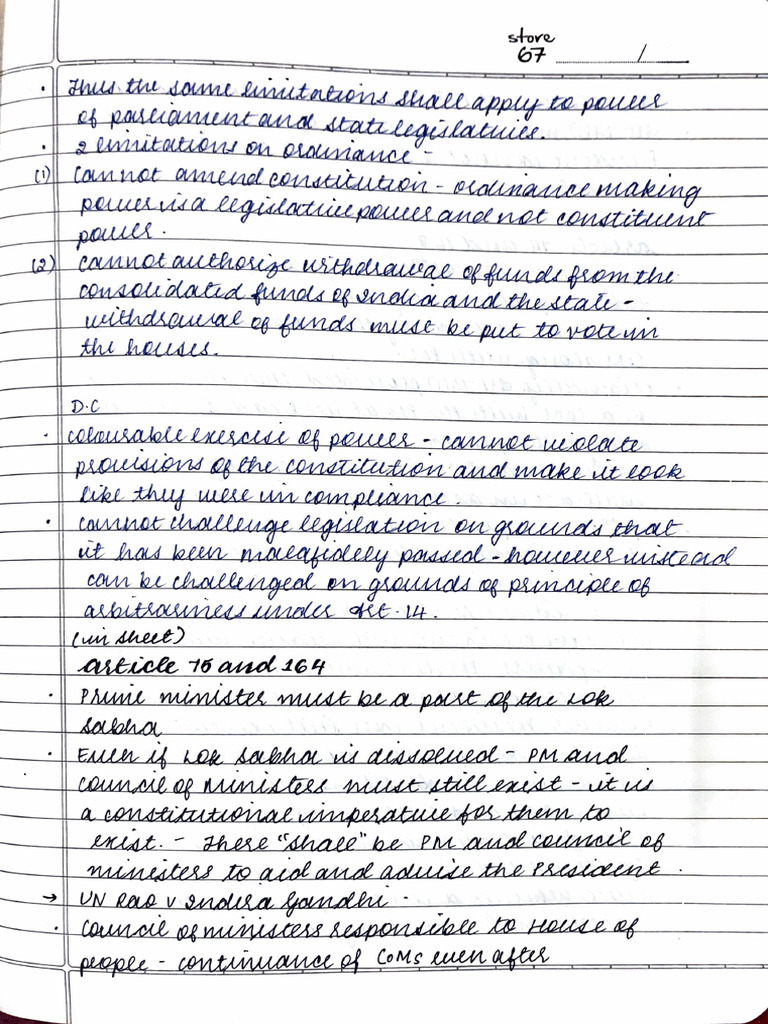 store
67 /
• Thus the same limitations shall apply to power
of parliament and state legislatures.
• 2 limitations on ordinance -
(1) Cannot amend constitution - ordinance making
power is a legislative power and not constituent
power.
(2) Cannot authorize withdrawal of funds from the
consolidated funds of India and the state -
withdrawal of funds must be put to vote in
the houses.
D.C
• Colourable exercise of power - cannot violate
provisions of the constitution and make it look
like they were in compliance.
• Cannot challenge legislation on grounds that
it has been malafidely passed - however instead
can be challenged on grounds of principle of
arbitrariness under Art. 14.
(in sheet)
Article 75 and 164
• Prime minister must be a part of the Lok
Sabha
• Even if Lok Sabha is dissolved - PM and
council of ministers must still exist - it is
a constitutional imperative for them to
exist. - There "shall" be PM and council of
ministers to aid and advise the President.
→ UN Rao v Indira Gandhi -
• Council of ministers responsible to House of
people - continuance of CoMs even after